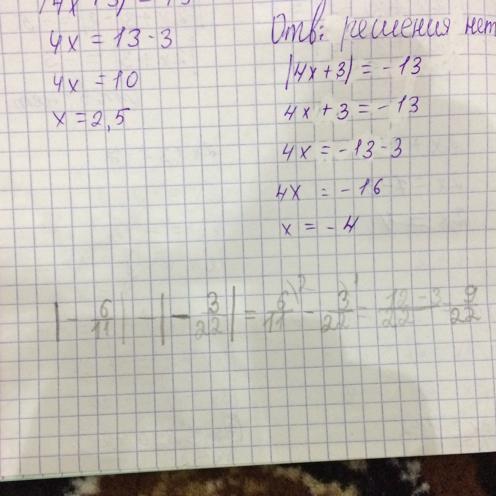 4x = 13 - 3
4x = 10
x = 2,5
Отв: решения нет
|4x + 3| = -13
4x + 3 = -13
4x = -13 - 3
4x = -16
x = -4
|- 6/11| - |- 3/22| = 6/11 - 3/22 = 12 - 3/22 9/22